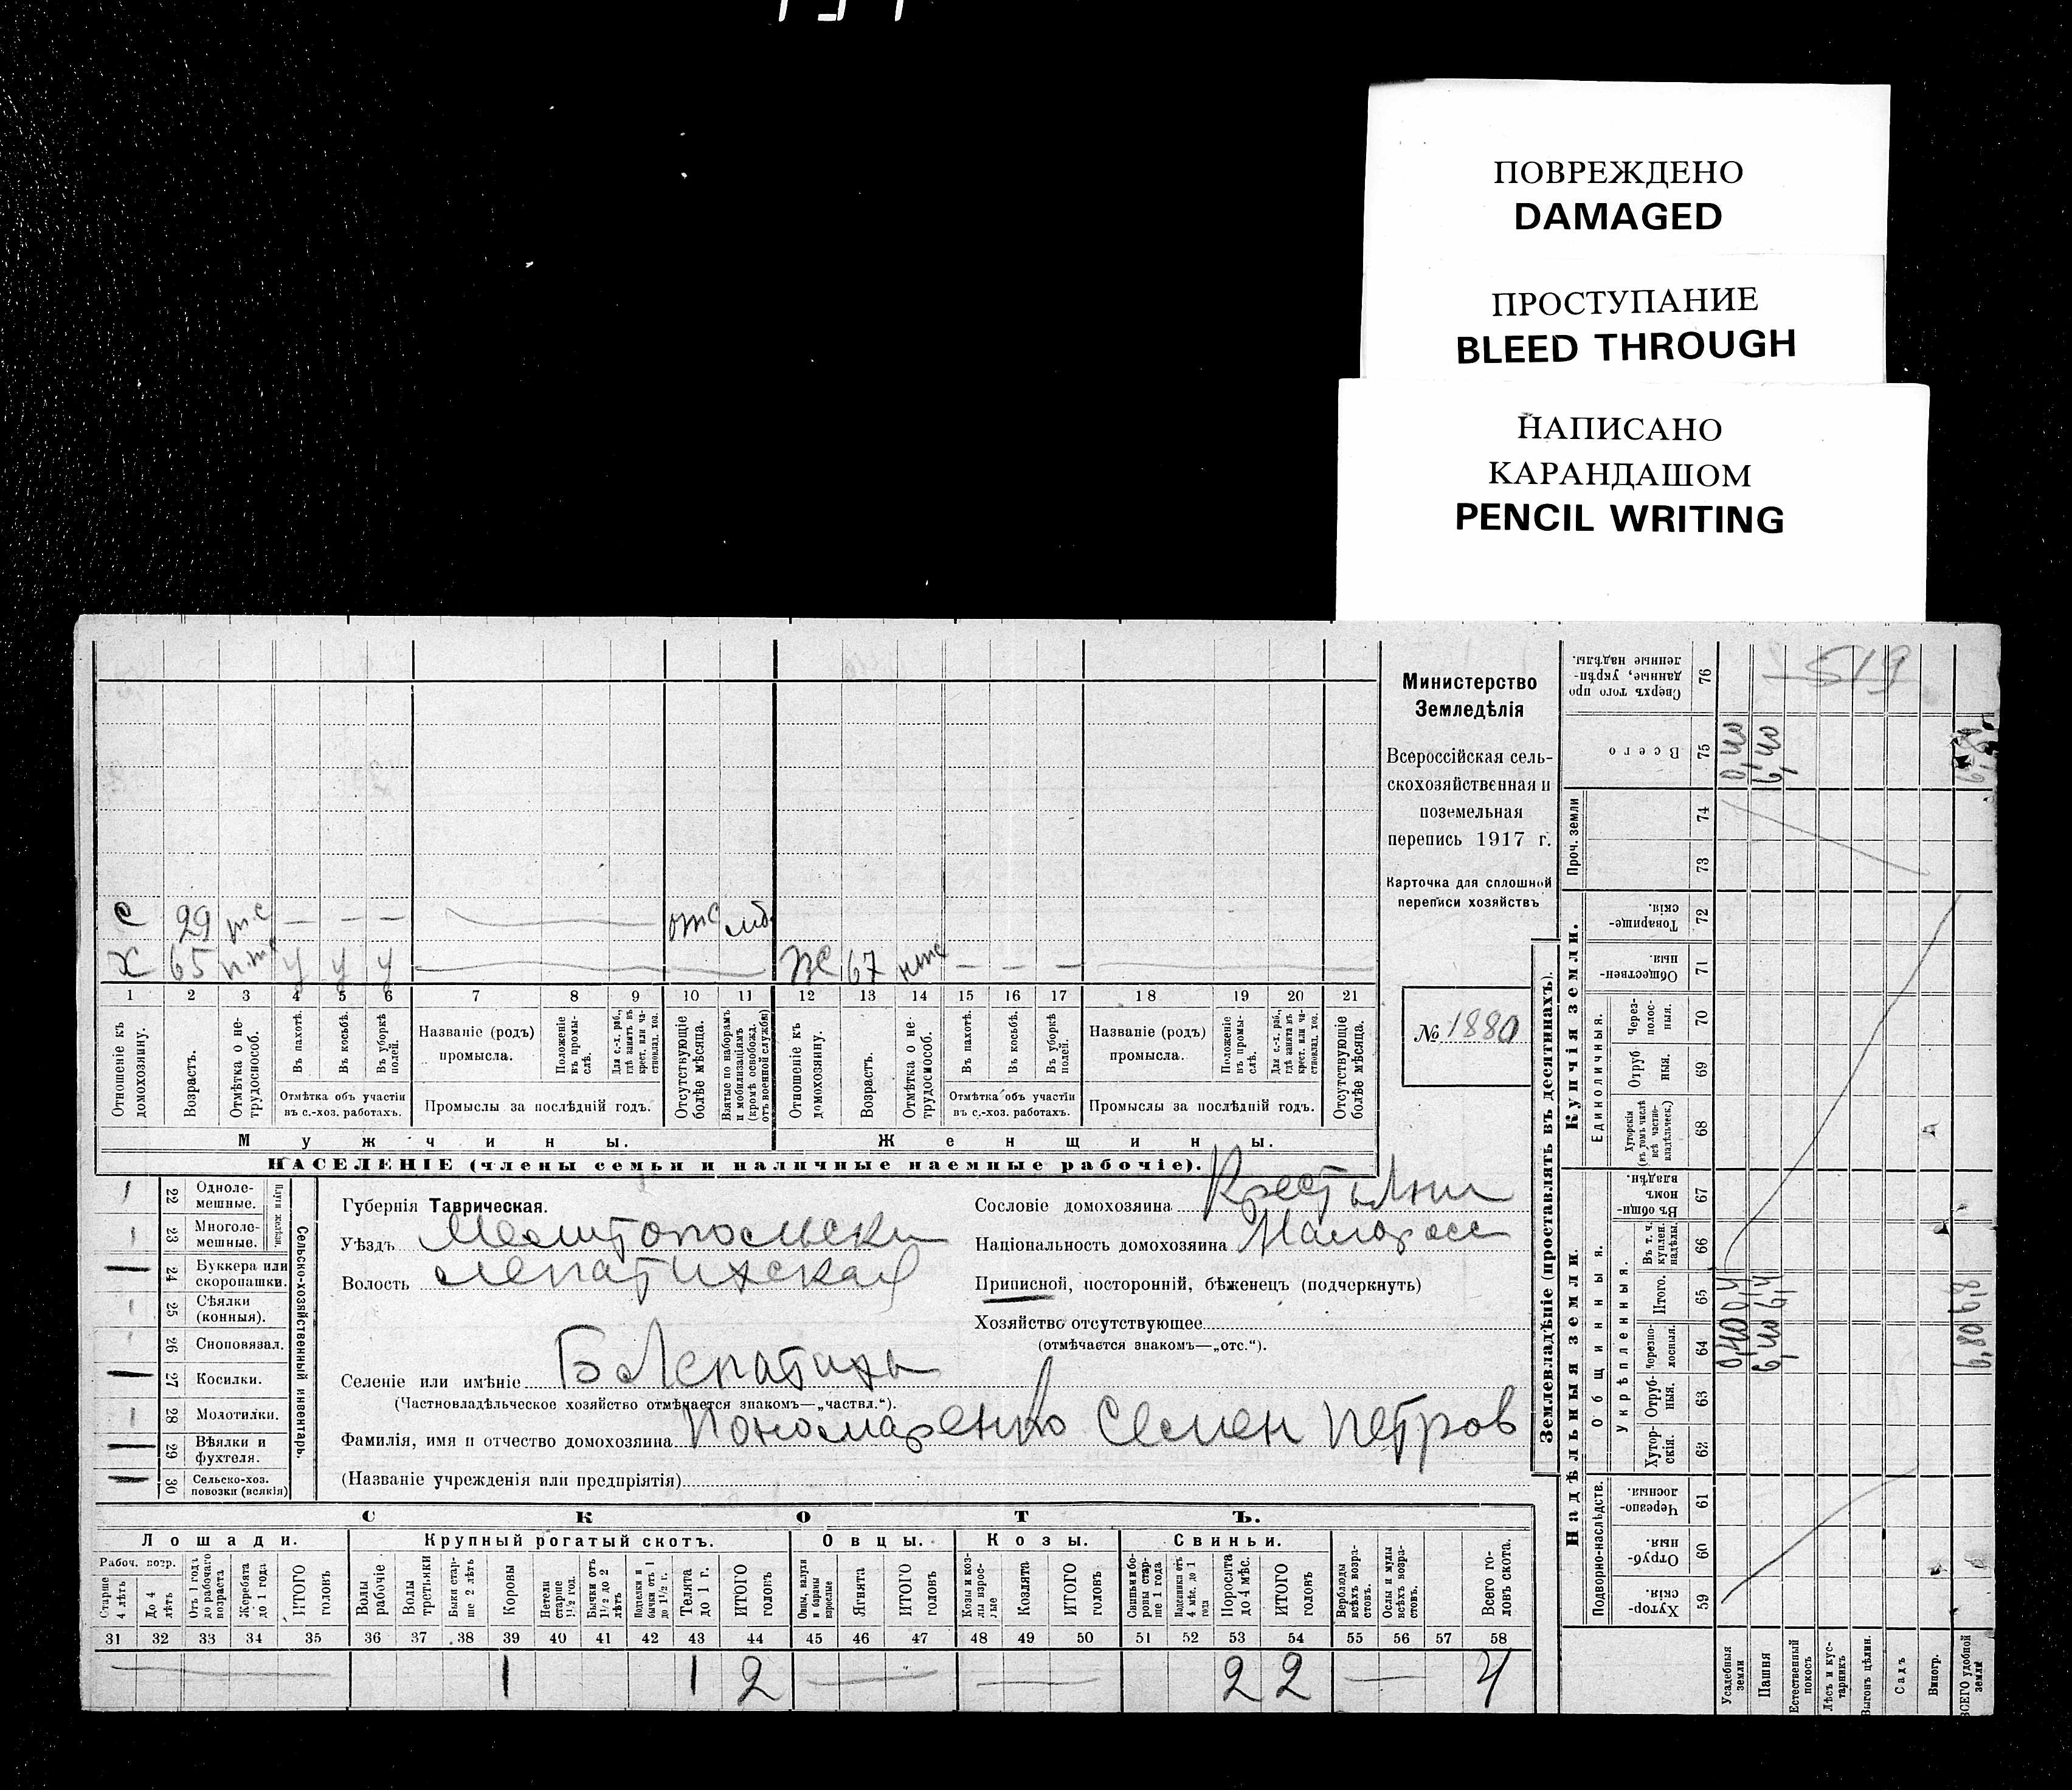 ПОВРЕЖДЕНО
DAMAGED
ПРОСТУПАНИЕ
BLEED THROUGH
НАПИСАНО
КАРАНДАШОМ
PENCIL WRITING
Министерство
Земледѣлія
Всероссійская сель-
скохозяйственная и
поземельная
перепись 1917 г.
Карточка для сплошной
переписи хозяйствъ
№ 1880
с 29 — — — отс мб
х 65 у у у ж 67 — — —
1 2 3 4 5 6 7 8 9 10 11 12 13 14 15 16 17 18 19 20 21
Отношеніе къ домохозяину.
Возрастъ.
Отмѣтка о не-трудоспособ.
Въ пахотѣ.
Въ косьбѣ.
Въ уборкѣ полей.
Отмѣтка объ участіи
въ с.-хоз. работахъ.
Названіе (родъ)
промысла.
Положеніе въ промы-слѣ.
Для с.-х. раб., гдѣ занятъ въ крест. или ча-стновлад. хоз.
Промыслы за послѣдній годъ.
Отсутствующіе болѣе мѣсяца.
Взятые по наборамъ и мобилизаціямъ (кромѣ освобожд. отъ военной службы)
Отношеніе къ домохозяину.
Возрастъ.
Отмѣтка о не-трудоспособ.
Въ пахотѣ.
Въ косьбѣ.
Въ уборкѣ полей.
Отмѣтка объ участіи
въ с.-хоз. работахъ.
Названіе (родъ)
промысла.
Положеніе въ промы-слѣ.
Для с.-х. раб., гдѣ занятъ въ крест. или ча-стновлад. хоз.
Промыслы за послѣдній годъ.
Отсутствующіе болѣе мѣсяца.
Мужчины. Женщины.
НАСЕЛЕНІЕ (члены семьи и наличные наемные рабочіе).
Сельско-хозяйственный инвентарь.
Плуги желѣзн.
1 22 Одноле-мешные.
1 23 Многоле-мешные.
— 24 Буккера или скоропашки.
1 25 Сѣялки (конныя).
26 Сноповязал.
— 27 Косилки.
1 28 Молотилки.
— 29 Вѣялки и фухтеля.
— 30 Сельско-хоз. повозки (всякія)
Губернія Таврическая.
Уѣздъ Мелитопольски
Волость Лепатихская
Селеніе или имѣніе Б Лепатиха
(Частновладѣльческое хозяйство отмѣчается знакомъ—„частвл.“).
Фамилія, имя и отчество домохозяина Пономаренко Семен Петров
(Названіе учрежденія или предпріятія)
Сословіе домохозяина
Національность домохозяина Малорос
Приписной, посторонній, бѣженецъ (подчеркнуть)
Хозяйство отсутствующее
(отмѣчается знакомъ—„отс.“).
СКОТЪ.
Лошади. Крупный рогатый скотъ. Овцы. Козы. Свиньи.
Рабоч. возр.
Старше 4 лѣтъ
До 4 лѣтъ
Отъ 1 года до рабочаго возраста
Жеребята до 1 года
ИТОГО головъ
Волы рабочіе
Волы третьяки
Быки стар-ше 2 лѣтъ
Коровы
Нетели старше 1½ год.
Бычки отъ 1½ до 2 лѣтъ
Подтелки и бычки отъ 1 до 1½ г.
Телята до 1 г.
ИТОГО головъ
Овцы, валухи и бараны взрослые
Ягнята
ИТОГО головъ
Козы и коз-лы взрос-лые
Козлята
ИТОГО головъ
Свиньи и бо-ровы стар-ше 1 года
Подсвинки отъ 4 мѣс. до 1 года
Поросята до 4 мѣс.
ИТОГО головъ
Верблюды всѣхъ возра-стовъ.
Ослы и мулы всѣхъ возра-стовъ.
Всего го-ловъ скота.
31 32 33 34 35 36 37 38 39 40 41 42 43 44 45 46 47 48 49 50 51 52 53 54 55 56 57 58
1 1 2 2 2 4
Землевладѣніе (проставлять въ десятинахъ).
Надѣльныя земли. Купчія земли. Проч. земли
Подворно-наслѣдств.
Общинныя.
Укрѣпленныя.
Единоличныя.
59 Хутор-скія.
60 Отруб-ныя
61 Черезпо-лосныя.
62 Хутор-скія.
63 Отруб-ныя.
64 Черезпо-лосныя.
65 Итого.
66 Въ т. ч. куплен. надѣлы.
67 Въ общи-номъ владѣн.
68 Хуторскія (въ томъ числѣ всѣ частно-владѣльческ.)
69 Отруб ныя.
70 Через-полос-ныя.
71 Обществен-ныя
72 Товарище-скія.
73
74
75 Всего
76 Сверхъ того про данные, укрѣп-ленные надѣлы.
519
Усадебныя земли 0,40 0,4 0,40
Пашня 6,40 6,4 6,40
Естественный покосъ
Лѣсъ и кус-тарникъ
Выгонъ цѣлин.
Садъ
Виногр.
ВСЕГО удобной земли 6,80 6,8